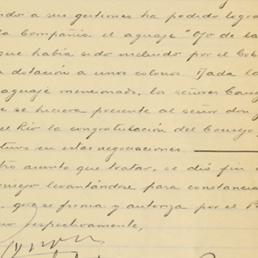 ndo a sus gestiones ha podido logra
la Compañía el aguaje "Yo de la
que había sido incluido por el Gob
la dotación a unos colonos. Dada la
aguaje mencionado, los señores Conse
se hiciera presente al señor don
el Río la congratulación del Consejo
tuvo en estas negociaciones.
otro asunto que tratar, se dió fin
onsejo levantándose para constancia
, que se firma y autoriza por el P
respectivamente,